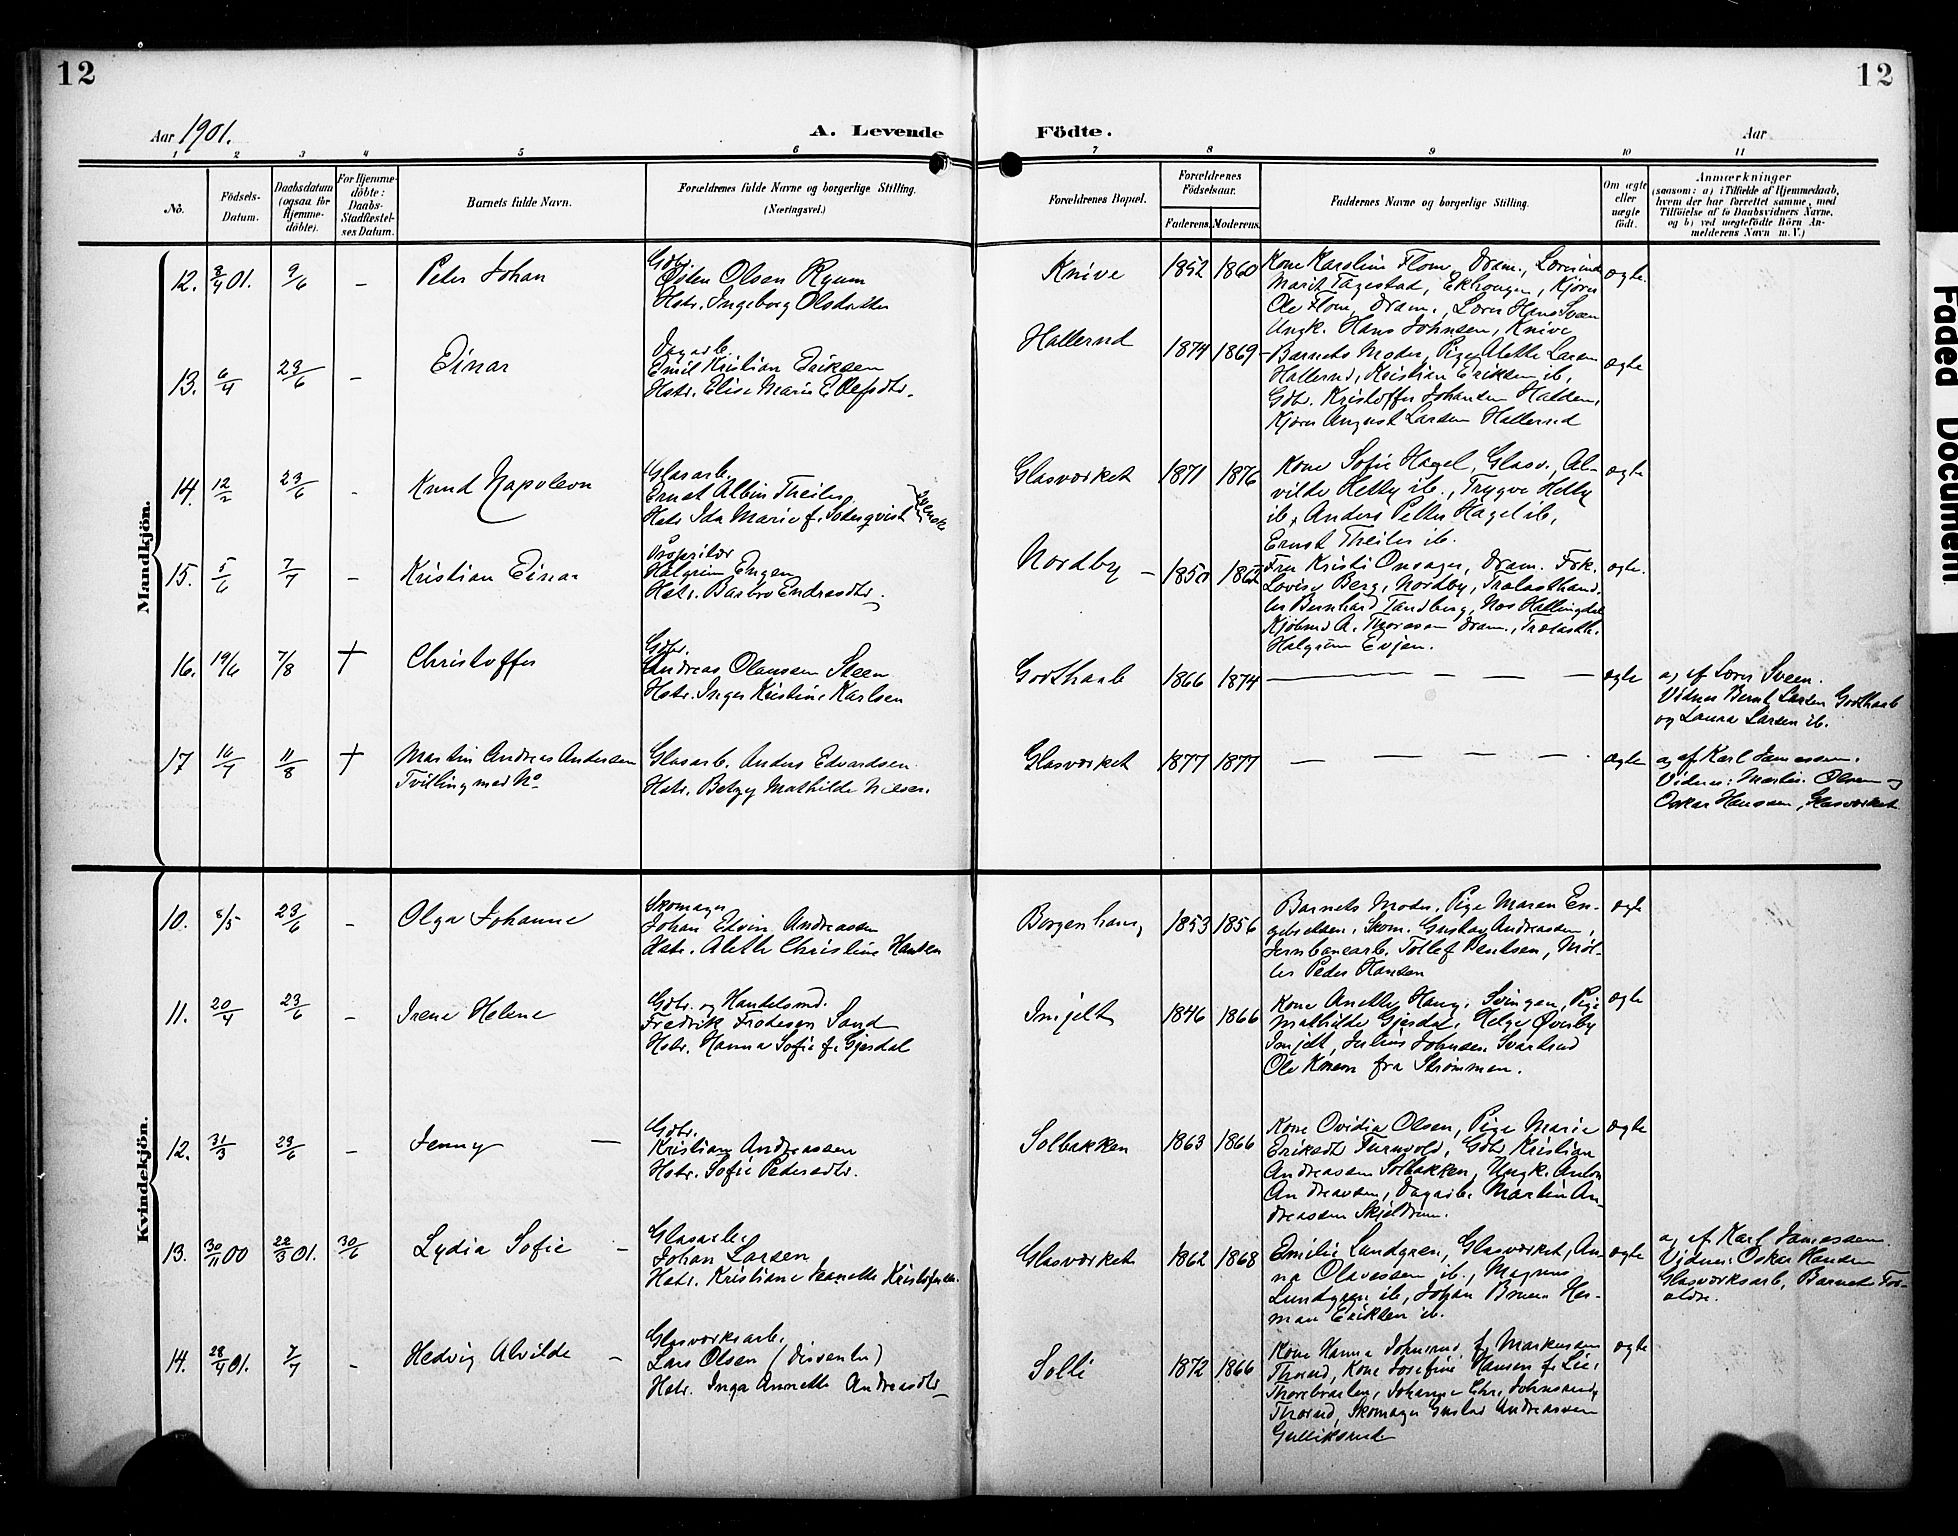 12
12
Aar 1901.
A. Levende
Födte.
Aar
1 2 3 4 5 6 7 8 9 10 11
No.
Födsels-
Datum.
Daabsdatum
(ogsaa för
Hjemme-
döbte).
For Hjemme-
döbte:
Daabs-
Stadfæstel-
ses Datum.
Barnets fulde Navn.
Forældrenes fulde Navne og borgerlige Stilling.
(Næringsvei.)
Forældrenes Bopæl.
Forældrenes
Födselsaar.
Faderens.
Moderens.
Faddernes Navne og borgerlige Stilling.
Om ægte
eller
uægte
födt.
Anmærkninger
(saasom: a) i Tilfælde af Hjemmedaab,
hvem der har forrettet samme, med
Tilföielse af to Daabsvidners Navne,
og b) ved uægtefödte Börn An-
melderens Navn m. V.)
Mandkjön.
12. 8/4 01. 9/6 – Peter Johan
Gdbr.
Østen Olsen Ryum
Hstr. Ingeborg Olsdatter
Knive 1852 1860
Kone Karoline Flom, Dram., Lærerinde
Marit Tagestad, Ekhougen, Kjører
Ole Flom, Dram., Lærer Hans Sveen
Ungk. Hans Johnsen, Knive
ægte.
13. 6/4 23/6 – Einar
Dagarb.
Emil Kristian Eriksen
Hstr. Elise Marie Ellefsdtr.
Hallerud 1874 1869
Barnets Moder, Pige Alette Larsen
Hallerud, Kristian Eriksen ib.,
Gdbr. Kristoffer Johansen Halden,
Kjører August Larsen Hallerud
ægte
14. 12/2 23/6 – Knud Napoleon
Glasarb.
Ernst Albin Theiler
Hstr. Ida Marie f. Søderqvist
Glasværket 1871 1876
Kone Sofie Hagel, Glasv., Al-
vilde Hetty ib., Trygve Hetty
ib, Anders Petter Hagel ib,
Ernst Theiler ib.
ægte
15. 5/6 7/7 – Kristian Einar
Proprietær
Halgrim Engen
Hstr. Barbro Endresdtr.
Nordby – 1850 1862
Fru Kristi Onsager, Dram. Frk.
Lovise Berg, Nordby, Trælasthand-
ler Bernhard Tandberg, Næs Hallingdal
Kjøbmd A. Thoresen Dram., Trælasth.
Halgrim Evjen.
ægte.
16. 19/6 7/8 + Christoffer
Gdbr.
Andreas Olaussen Steen
Hstr. Inger Kristine Karlsen
Godthaab 1866 1874 – – – – ægte
a, af Lærer Sveen.
Vidner Bernt Larsen Godthaab
og Laura Larsen ib.
17 16/7 11/8 + Martin Andreas Andersen
Tvilling med No
Glasarb. Anders Edvardsen
Hstr. Betzy Mathilde Nilsen.
Glasværket 1877 1877 – – – – ægte
a, af Karl Jamessen.
Vidner: Martin Olsen og
Oskar Hanssen, Glasværket
Kvindekjön.
10. 8/5 23/6 – Olga Johanne
Skomager
Johan Edvin Andreassen
Hstr. Alette Christine Hansen
Borgenhaug 1853 1856
Barnets Moder, Pige Maren En-
gebretsen, Skom. Gustav Andreassen,
Jernbanearb. Tollef Bentsen, Møl-
ler Peder Hansen
ægte
11. 20/4 23/6 – Irene Helene
Gdbr. og Handelsmd.
Fredrik Frodesen Sand
Hstr. Hanna Sofie f. Gjesdal
Imjelt 1846 1866
Kone Anette Haug, Svingen, Pige
Mathilde Gjesdal, Helge Øverby
Imjelt, Julius Johnsen Svartrud
Ole Knem fra Strømmen.
ægte
12. 31/3 23/6 – Jenny –
Gdbr.
Kristian Andreassen
Hstr. Sofie Pedersdtr.
Solbakken 1863 1866
Kone Ovidia Olsen, Pige Marie
Eriksdtr Furuvold, Gdbr Kristian
Andreassen Solbakken, Ungk. Anton
Andreassen, Dagarb. Martin An-
dreassen Skjeldrum.
ægte
13. 30/11 00 22/3 01. 30/6 Lydia Sofie –
Glasarb.
Johan Larsen
Hstr. Kristiane Jeanette Kristofersen.
Glasværket 1862 1868
Emilie Lundgren, Glasværket, An-
na Olavessen ib., Magnus
Lundgren ib, Johan Bruun Her-
man Eriksen ib.
ægte
a, af Karl Jamessen.
Vidner: Oskar Hansen
Glasværksarb, Barnets For-
ældre.
14. 28/4 01. 7/7 – Hedvig Alvilde –
Glasværksarb.
Lars Olsen (Dissenter)
Hstr. Inga Annette Andreasdtr
Solli 1872 1866
Kone Hanna Johnsrud f. Markussen
Thorud, Kone Josefine Hansen f. Lie,
Johanne Chr. Johnsrud,
Thorud, Skomager Gustav Andreassen
Gulliksrud
ægte
Faded Document